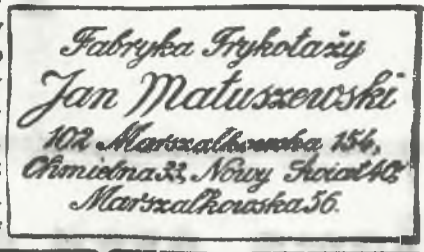 Fabryka Trykotaży
Jan Matuszewski
102 Marszałkowska 154,
Chmielna 33, Nowy Świat 40,
Marszałkowska 56.